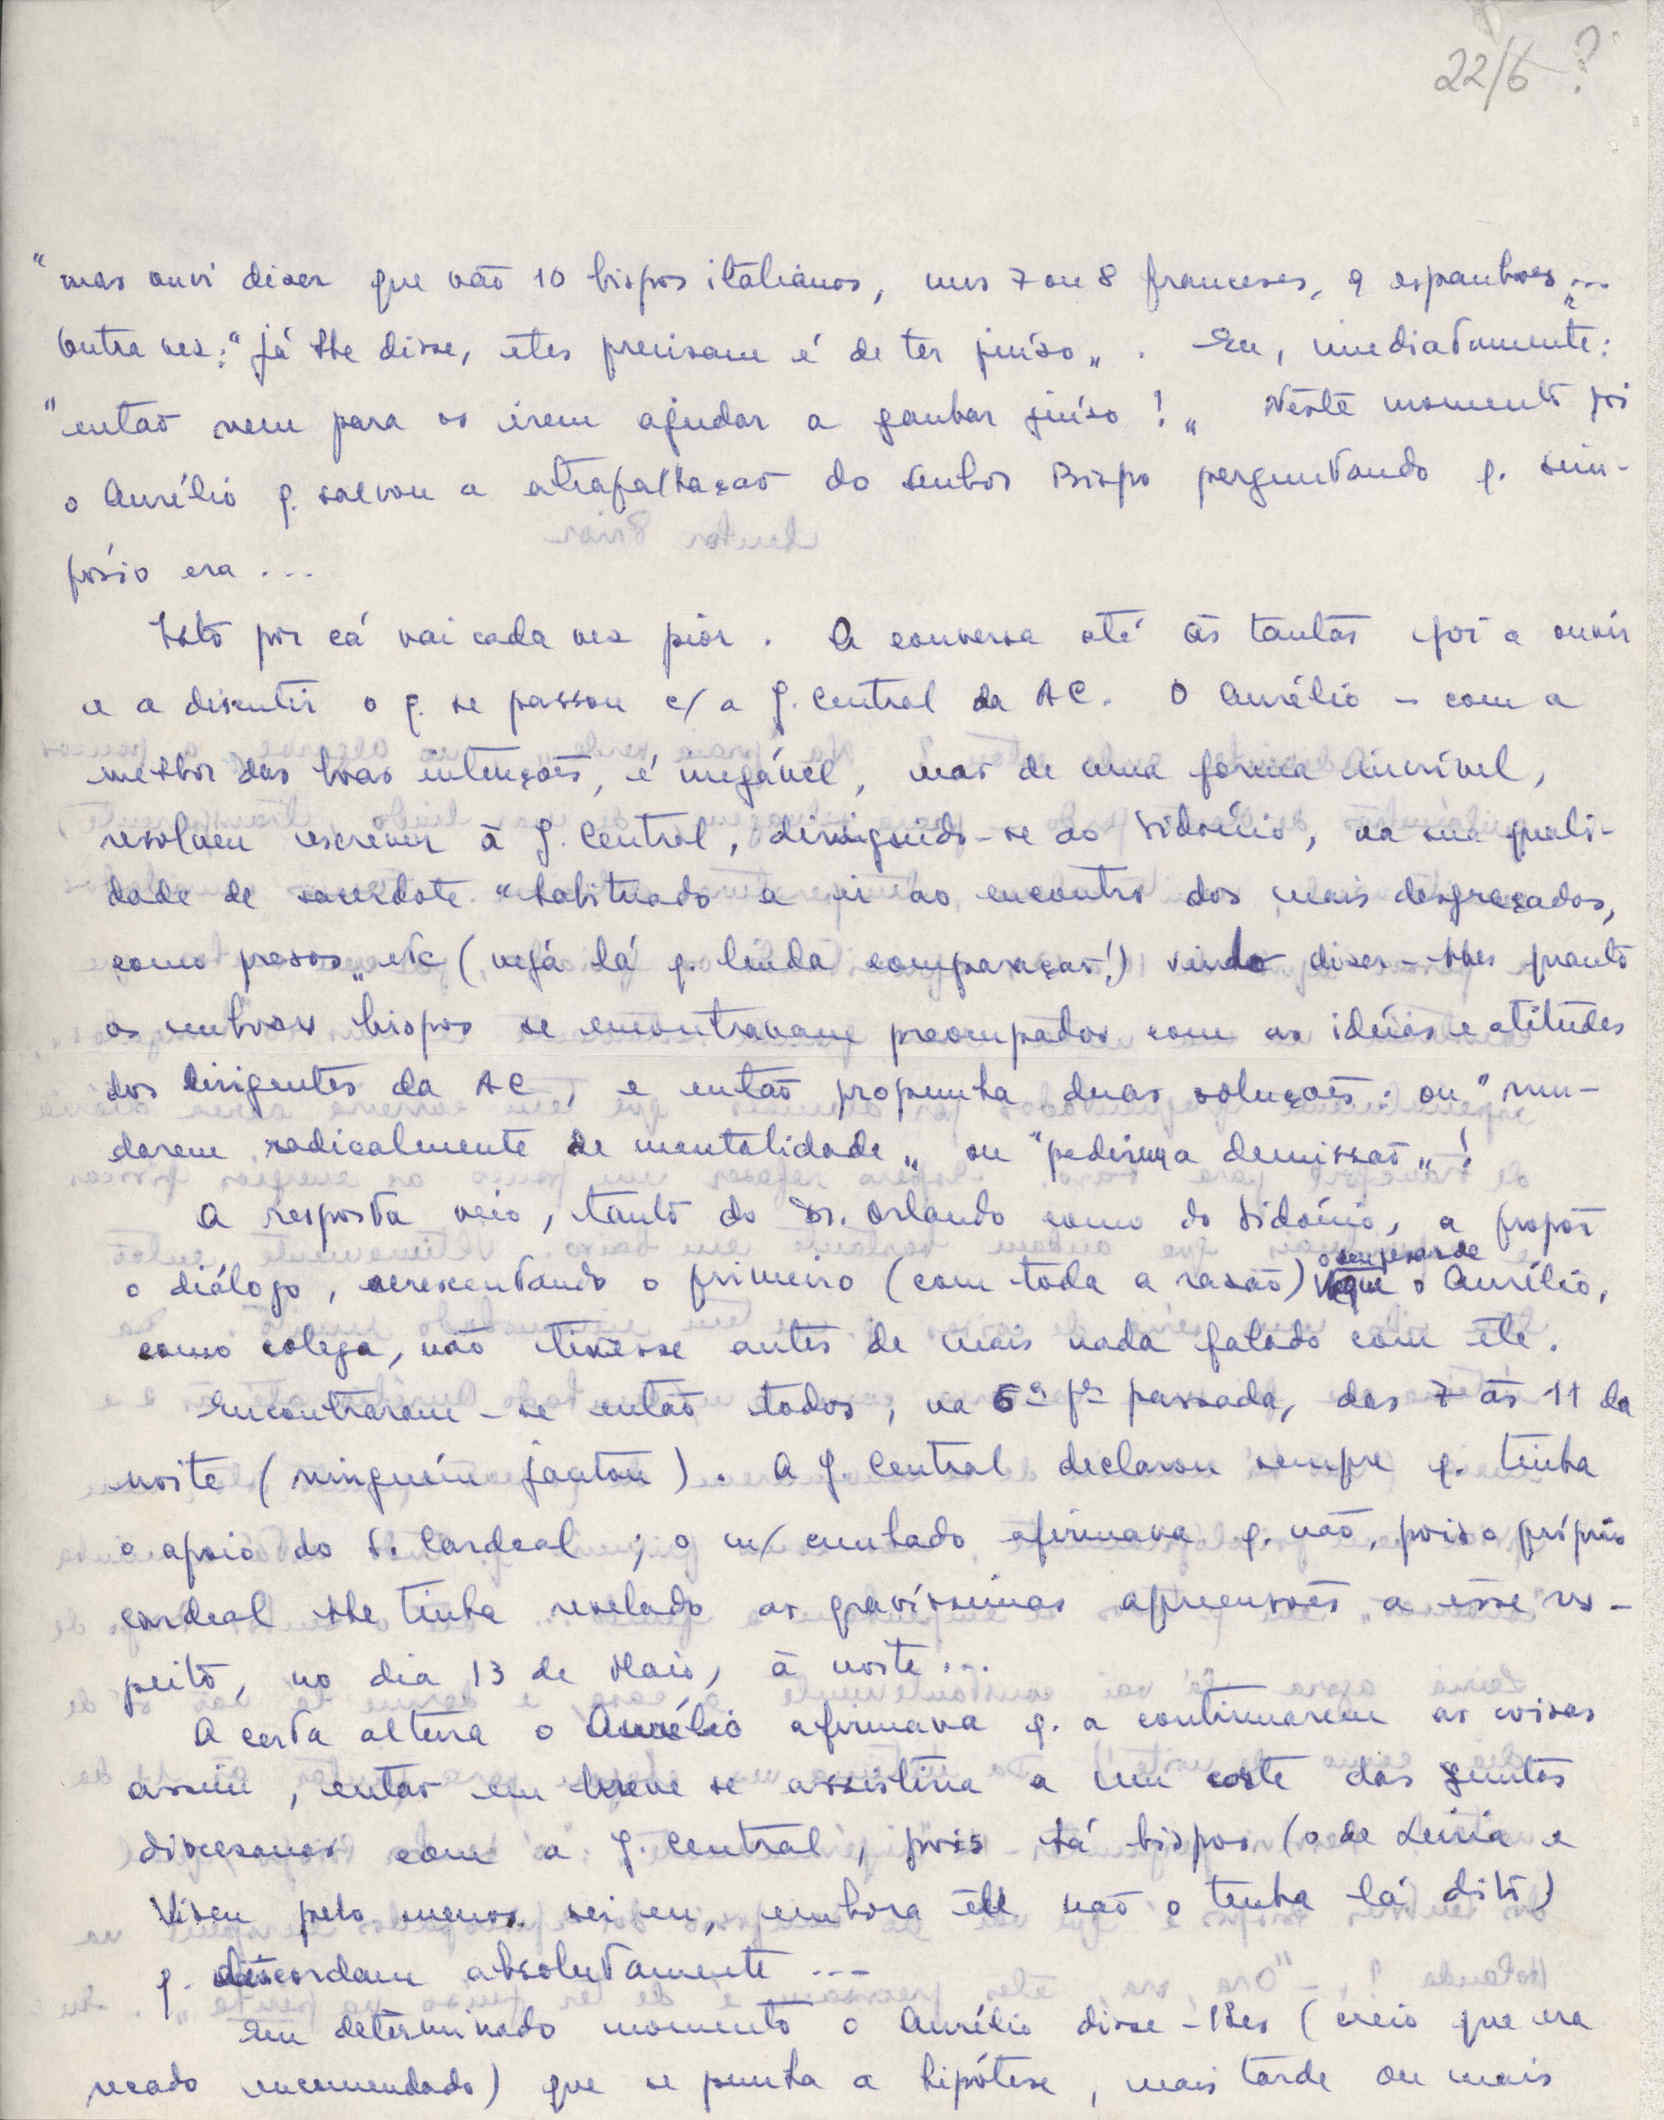 22/6 ?
"mas ouvi dizer que vão 10 bispos italianos, uns 7 ou 8 franceses, 9 espanhoes"...
Outra vez: "já lhe disse, êles precisam é de ter juízo". Eu, imediatamente:
"então nem para os irem ajudar a ganhar juízo!" Nêste momento foi
o Aurélio q. salvou a atrapalhação do Senhor Bispo perguntando q. sim-
pósio era ...
Isto por cá vai cada vez pior. A conversa até às tantas foi a ouvir
e a discutir o q. se passou c/ a J. Central da AC. O Aurélio - com a
melhor das boas intenções, é inegável, mas de uma forma incrível,
resolveu escrever à J. Central, dirigindo-se ao Sidónio, na sua quali-
dade de sacerdote "habituado a ir ao encontro dos mais desgraçados,
como presos" etc (vejá lá q. linda comparação!) vindo dizer-lhes quanto
os senhores bispos se encontravam preocupados com as idéias e atitudes
dos dirigentes da AC, e então propunha duas soluções: ou "mu-
darem radicalmente de mentalidade" ou "pedirem a demissão"!
A resposta veio, tanto do Dr. Orlando como do Sidónio, a propôr
o diálogo, acrescentando o primeiro (com toda a razão) o seu pesar de que o Aurélio,
como colega, não tivesse antes de mais nada falado com êle.
Encontraram-se então todos, na 6ª fª passada, das 7 às 11 da
noite (ninguém jantou). A J. Central declarou sempre q. tinha
o apoio do S. Cardeal; o m/ cunhado afirmava q. não, pois o próprio
Cardeal lhe tinha revelado as gravíssimas apreensões a êsse res-
peito, no dia 13 de Maio, à noite...
A certa altura o Aurélio afirmava q. a continuarem as coisas
assim, então em breve se assistiria a um corte das Juntas
diocesanas com a J. Central, pois há bispos (o de Leiria e
Viseu pelo menos sei eu, embora êle não o tenha lá dito)
q. discordam absolutamente ...
Em determinado momento o Aurélio disse-lhes (creio que era
recado encomendado) que se punha a hipótese, mais tarde ou mais